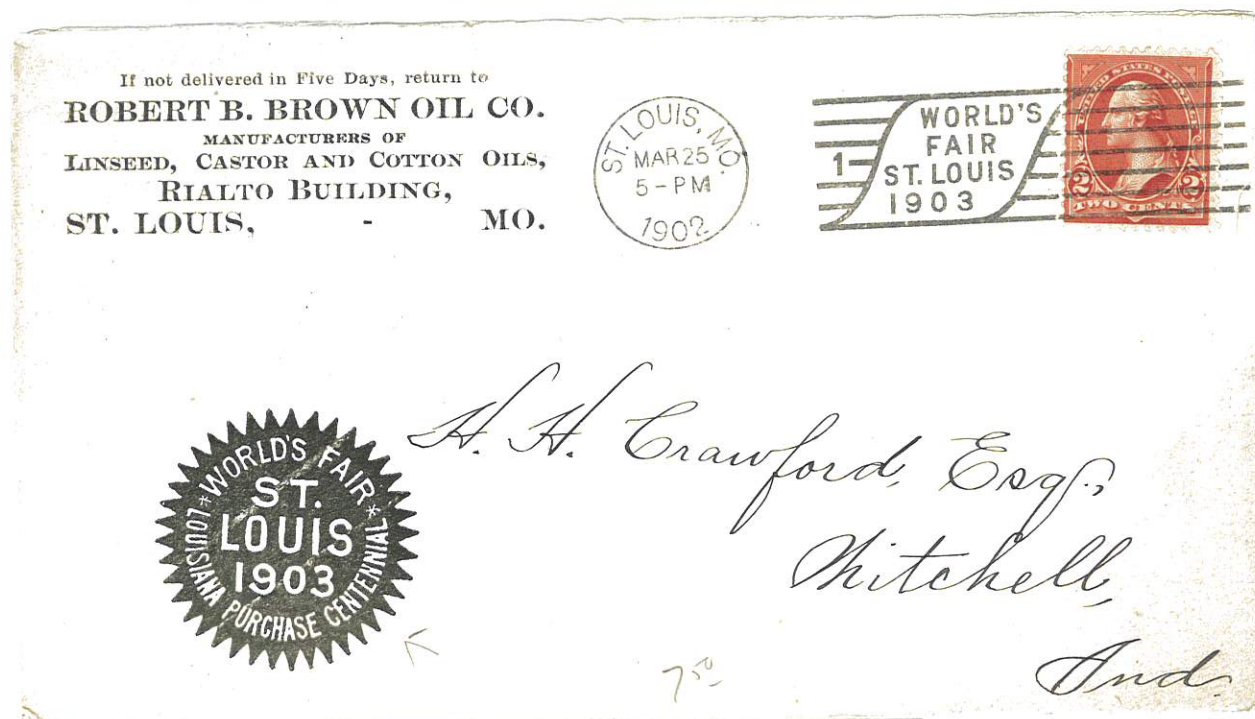 If not delivered in Five Days, return to
ROBERT B. BROWN OIL CO.
MANUFACTURERS OF
LINSEED, CASTOR AND COTTON OILS,
RIALTO BUILDING,
ST. LOUIS, - MO.
ST. LOUIS, MO.
MAR 25
5-PM
1902
1
WORLD'S
FAIR
ST. LOUIS
1903
UNITED STATES POSTAGE
2 2
TWO CENTS
H. H. Crawford, Esq.,
Mitchell,
Ind.
* WORLD'S FAIR *
ST.
LOUIS
1903
LOUISIANA PURCHASE CENTENNIAL
7 50